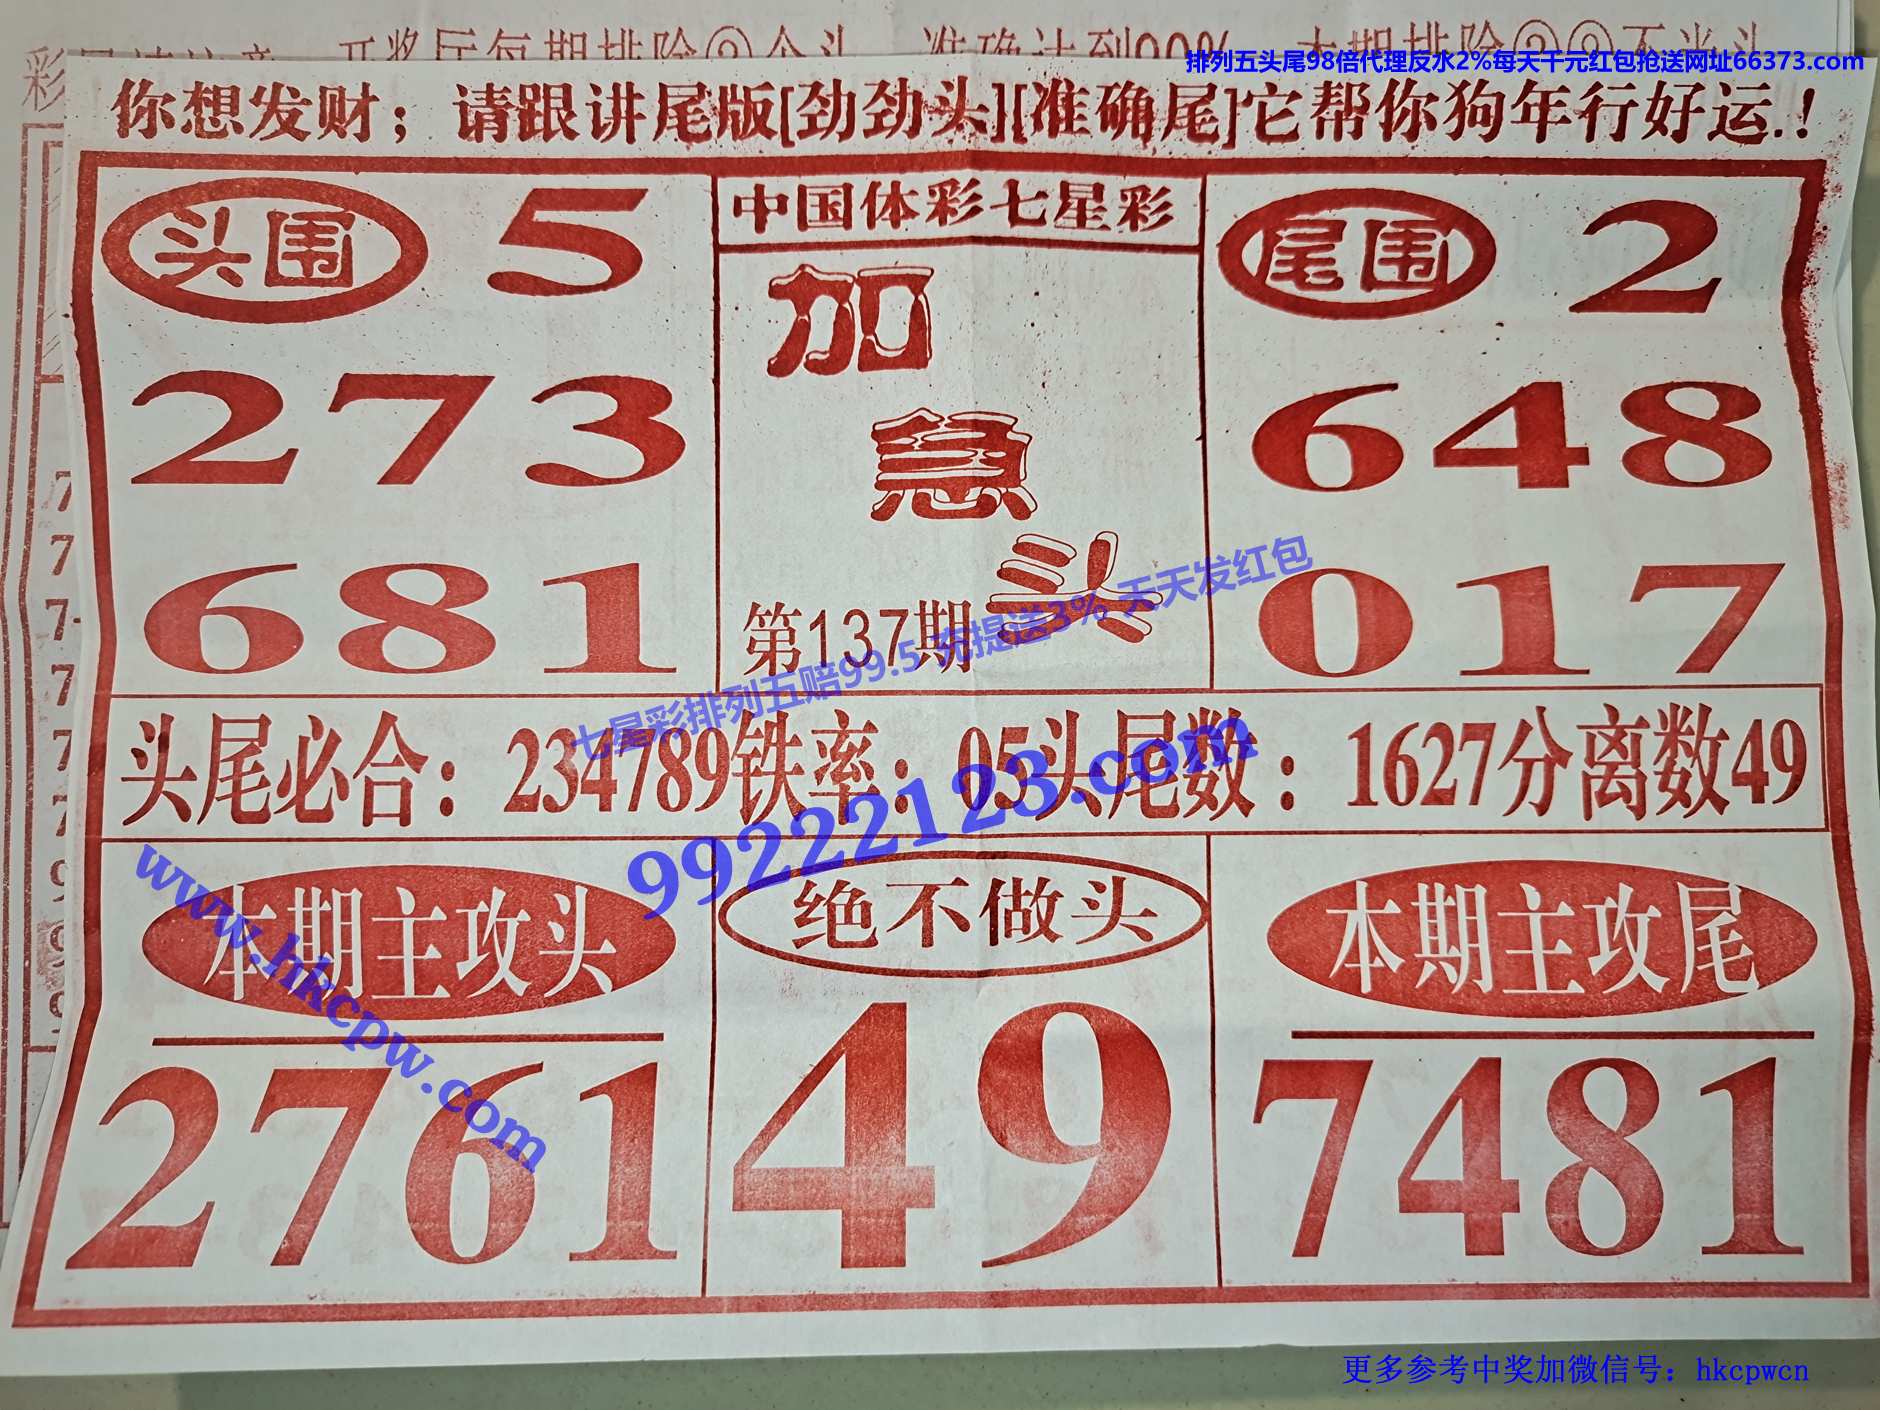 排列五头尾98倍代理反水2%每天千元红包抢送网址66373.com
你想发财；请跟讲尾版[劲劲头][准确尾]它帮你狗年行好运.!
头围 5
273
681
中国体彩七星彩
加
急
头
第137期
尾围 2
648
017
七星彩排列五赔99.5 充提送3% 天天发红包
头尾必合：234789铁率：05头尾数：1627分离数49
99222123.com
www.hkcpw.com
本期主攻头
2761
绝不做头
49
本期主攻尾
7481
更多参考中奖加微信号：hkcpwcn